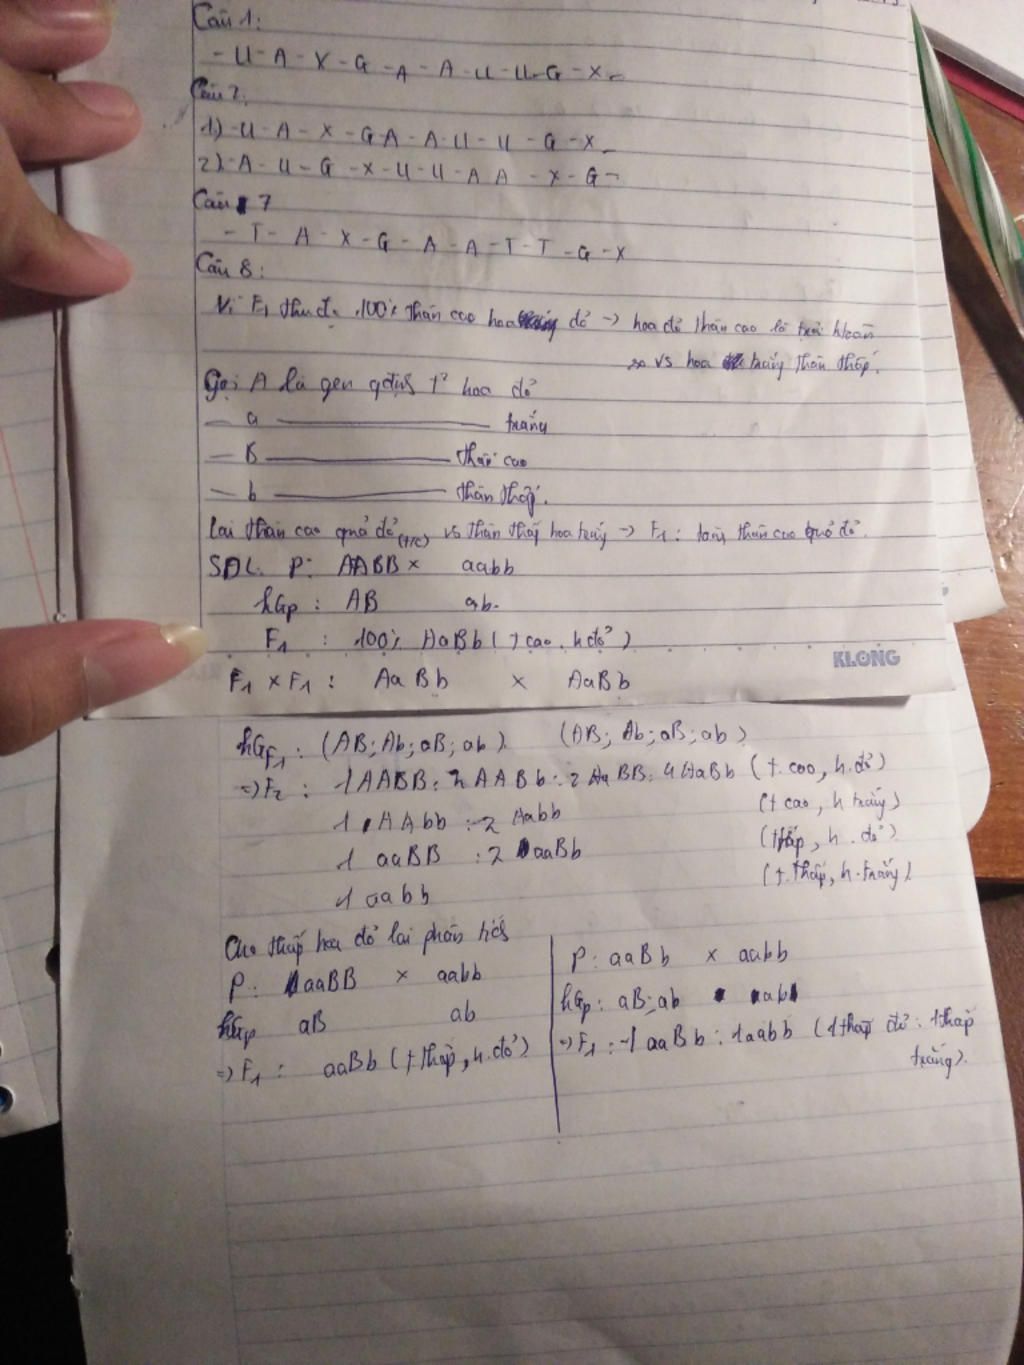 Câu 1:
- U - A - X - G - A - A - U - U - G - X -
Câu 2:
1) - U - A - X - G A - A - U - U - G - X -
2) - A - U - G - X - U - U - A A - X - G -
Câu 7
- T - A - X - G - A - A - T - T - G - X
Câu 8:
Vì F1 thu đc 100% thân cao hoa đỏ → hoa đỏ thân cao là trội hoàn
so vs hoa trắng thân thấp.
Gọi A là gen qđịnh t² hoa đỏ
- a ——— trắng
- B ——— thân cao
- b ——— thân thấp.
Lai thân cao quả đỏ (t/c) vs thân thấp hoa trắng → F1: toàn thân cao quả đỏ.
SĐL. P: AABB × aabb
hGp : AB ab.
F1 : 100% AaBb (T cao. h đỏ)
KLONG
F1 × F1 : AaBb × AaBb
hGF1 : (AB; Ab; aB; ab) (AB; Ab; aB; ab)
=> F2 : 1AABB : 2AABb : 2AaBB : 4AaBb (t. cao, h. đỏ)
1 AAbb : 2 Aabb (t cao, h trắng)
1 aaBB : 2 aaBb (thấp, h. đỏ)
1 aabb (t. thấp, h. trắng)
Cho thấp hoa đỏ lai phân tích
P: aaBB × aabb
hGp aB ab
=> F1 : aaBb (t thấp, h. đỏ)
P: aaBb × aabb
hGp: aB; ab ab
=> F1 : 1 aaBb : 1aabb (1 thấp đỏ : 1 thấp
trắng).